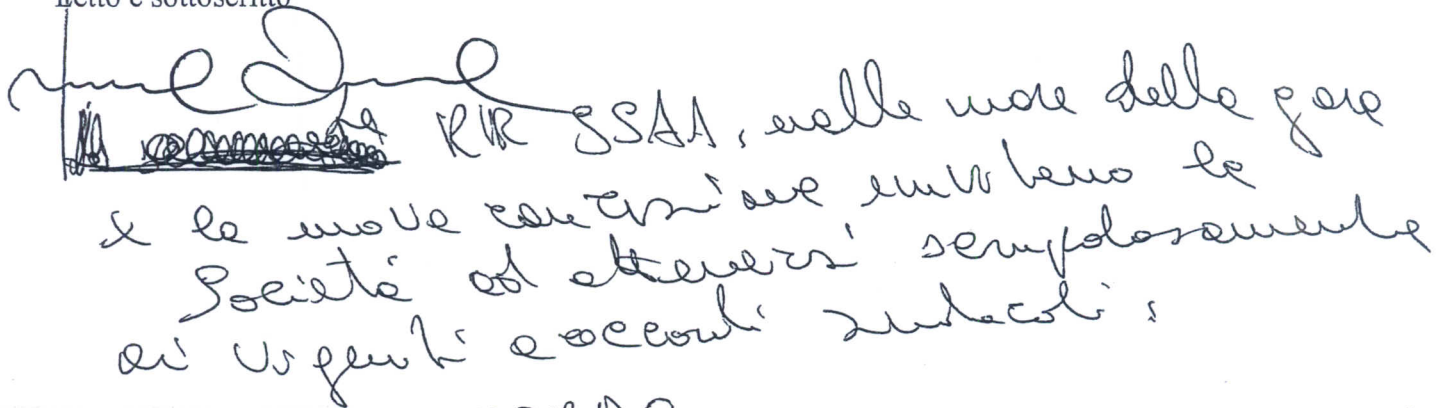 Letto e sottoscritto
La RIR SSAA, nelle more della gara
x la nuova concessione invitano la
Società ad attenersi scrupolosamente
ai vigenti accordi sindacali: